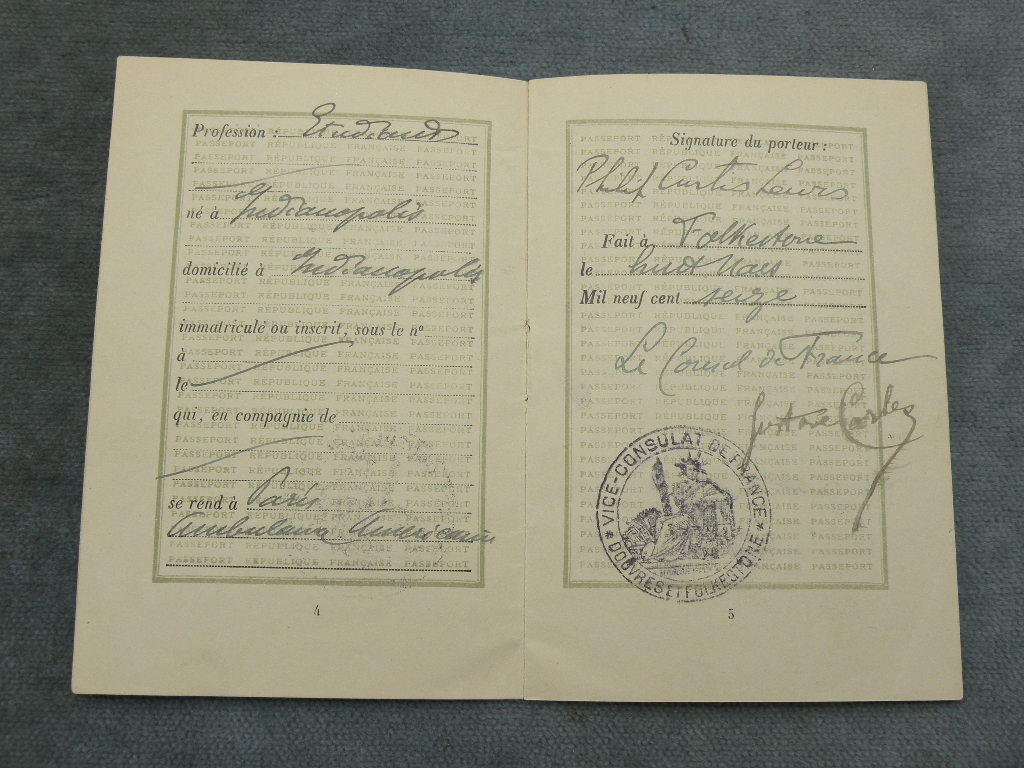 Profession : Etudiant
né à Indianapolis
domicilié à Indianapolis
immatriculé ou inscrit, sous le nº
à
le
qui, en compagnie de
se rend à Paris
Ambulance Américaine
4
Signature du porteur :
Philip Curtis Lewis
Fait à Folkestone
le huit Mars
Mil neuf cent seize
Le Consul de France
Gustave
VICE-CONSULAT DE FRANCE
DOUVRES ET FOLKESTONE
5
PASSEPORT RÉPUBLIQUE FRANÇAISE PASSEPORT